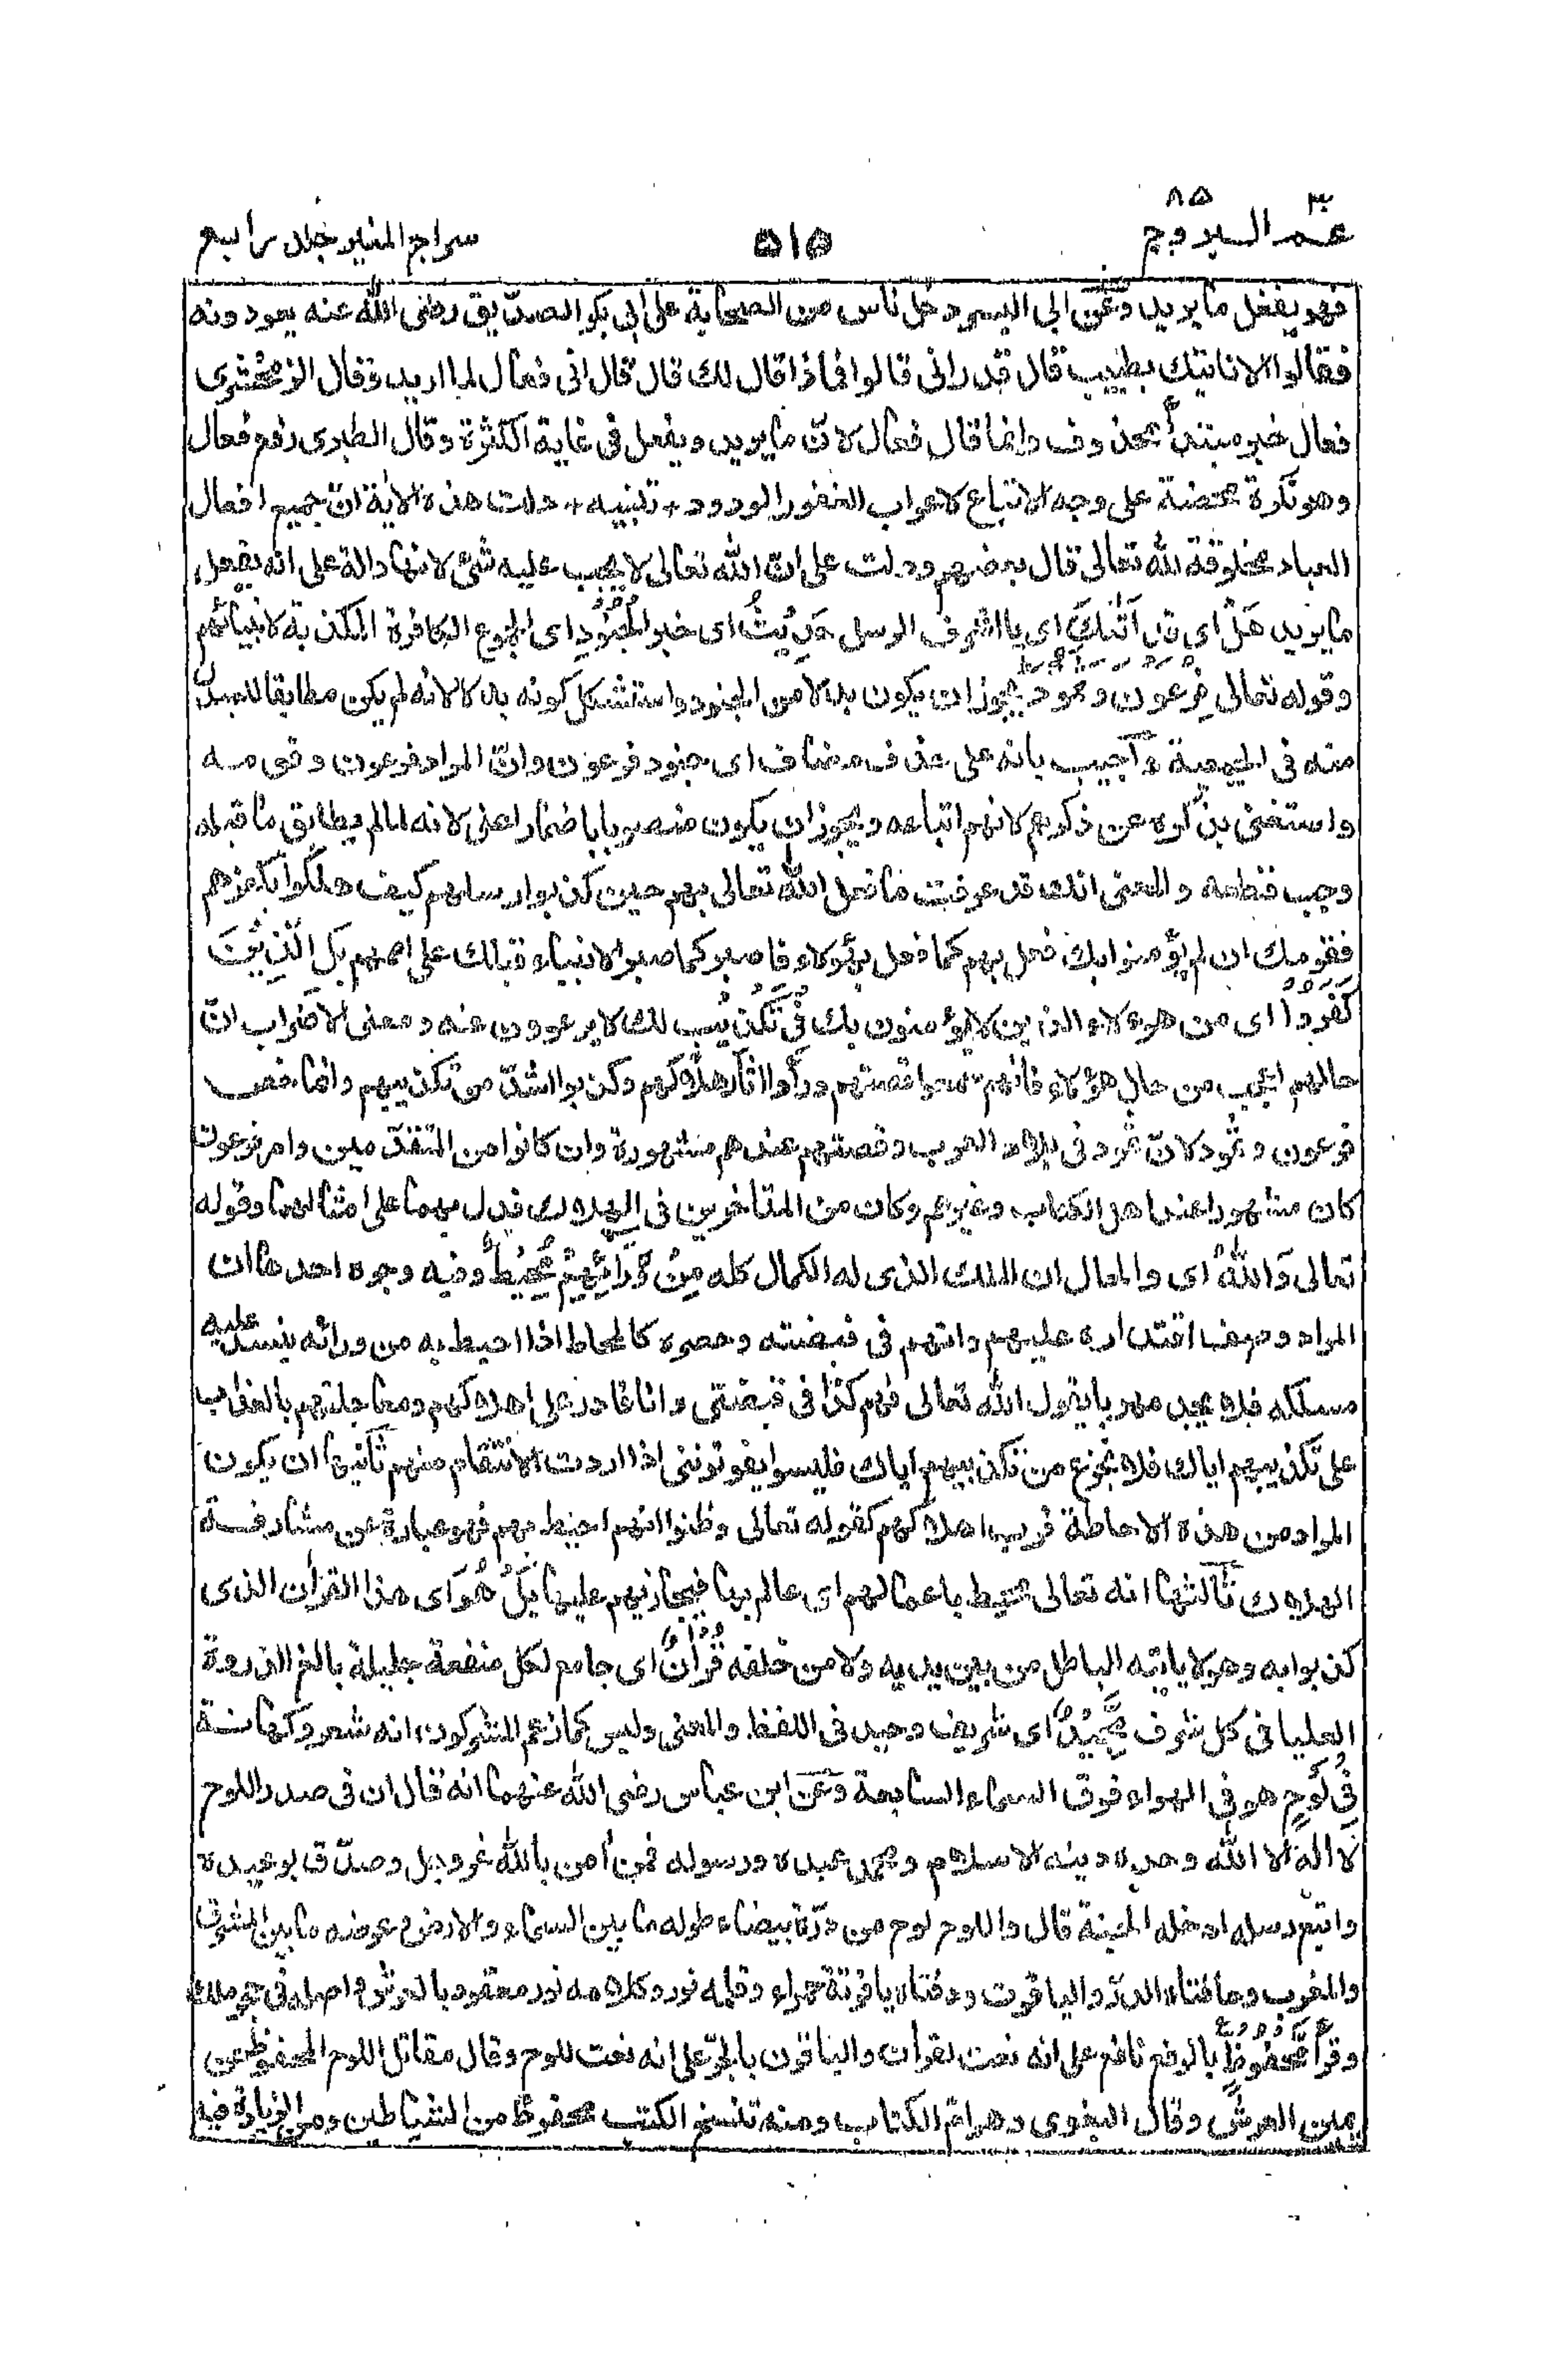 عمّ ٣٠ البروج ٨٥
٥١٥
سراج المنير جلد رابع
فهو يفعل ما يريد وعن ابى اليسر دخل ناس من الصحابة على ابى بكر الصدّيق رضى الله عنه يعودونه
فقالوا الا ناتيك بطبيب قال قد رانى قالوا فماذا قال لك قال قال انى فعال لما اريد وقال الزمخشرى
فعال خبر مبتدأ محذوف وانما قال فعال لانّ ما يريد ويفعل فى غاية الكثرة وقال الطبرى رفع فعال
وهو نكرة محضة على وجه الاتباع لاعراب الغفور الودود + تنبيه + دلت هذه الاية انّ جميع افعال
العباد مخلوقة لله تعالى قال بعضهم ودلت على انّ الله تعالى لا يجب عليه شئ لانها دالة على انه يفعل
ما يريد هَلْ اى قد اَتٰىكَ اى يا اشرف الرسل حَدِيْثُ اى خبر الْجُنُوْدِ اى الجموع الكافرة المكذبة لانبيائهم
وقوله تعالى فِرْعَوْنَ وَثَمُوْدَ يجوز ان يكون بدلا من الجنود واستشكل كونه بدلا لانه لم يكن مطابقا للمبدل
منه فى الجمعية وأجيب بانه على حذف مضاف اى جنود فرعون وانّ المراد فرعون وقومه
واستغنى بذكره عن ذكرهم لانهم اتباعه ويجوز ان يكون منصوبا باضمار اعنى لانه لما لم يطابق ما قبله
وجب قطعه والمعنى انك قد عرفت ما فعل الله تعالى بهم حين كذبوا رسلهم كيف هلكوا بكفرهم
فقومك ان لم يؤمنوا بك فعل بهم كما فعل بهؤلاء فاصبر كما صبر الانبياء قبلك على اممهم بَلِ الَّذِيْنَ
كَفَرُوْا اى من هوءلاء الذين لا يؤمنون بك فِىْ تَكْذِيْبٍ لك لا يرعوون عنه ومعنى الاضراب انّ
حالهم اعجب من حال هؤلاء فانهم سمعوا قصتهم ورأوا اثار هلاكهم وكذبوا اشدّ من تكذيبهم وانما خص
فرعون وثمود لانّ ثمود فى بلاد العرب وقصتهم عندهم مشهورة وان كانوا من المتقدّمين وامر فرعون
كان مشهورا عند اهل الكتاب وغيرهم وكان من المتاخرين فى الهلاك فدل بهما على امثالهما وقوله
تعالى وَاللّٰهُ اى والحال ان الملك الذى له الكمال كله مِنْ وَّرَآئِهِمْ مُّحِيْطٌ وفيه وجوه احدها ان
المراد وصف اقتداره عليهم وانهم فى قبضته وحصره كالمحاط اذا احيط به من ورائه ينسد عليه
مسلكه فلا يجد مهربا يقول الله تعالى فهم كذا فى قبضتى وانا قادر على اهلاكهم ومعاجلتهم بالعذاب
على تكذيبهم اياك فلا تجزع من تكذيبهم اياك فليسوا يفوتوننى اذا اردت الانتقام منهم ثانيها ان يكون
المراد من هذه الاحاطة قرب اهلاكهم كقوله تعالى وظنوا انهم احيط بهم فهو عبارة عن مشارفة
الهلاك ثالثها انه تعالى محيط باعمالهم اى عالم بها فيجازيهم عليها بَلْ هُوَ اى هذا القرأن الذى
كذبوا به وهو لا ياتيه الباطل من بين يديه ولا من خلفه قُرْاٰنٌ اى جامع لكل منفعة جليلة بالغ الذروة
العليا فى كل شرف مَّجِيْدٌ اى شريف وحيد فى اللفظ والمعنى وليس كما زعم المشركون انه شعر وكهانة
فِىْ لَوْحٍ هو فى الهواء فوق السماء السابعة وعن ابن عباس رضى الله عنهما انه قال ان فى صدر اللوح
لا اله الا الله وحده دينه الاسلام ومحمد عبده ورسوله فمن أمن بالله عزوجل وصدّق بوعيده
واتبع رسله ادخله الجنة قال واللوح لوح من درّة بيضاء طوله ما بين السماء والارض وعرضه ما بين المشرق
والمغرب وحافتاه الدرّ والياقوت ودفتاه ياقوتة حمراء وقلمه نور وكلامه نور معقود بالعرش واصله فى حجر ملك
وقرأ مَّحْفُوْظٌ بالرفع نافع على انه نعت لقرأن والباقون بالجرّ على انه نعت للوح وقال مقاتل اللوح المحفوظ عن
يمين العرش وقال البغوى وهو امّ الكتاب ومنه تنسخ الكتب محفوظ من الشياطين ومن الزيادة فيه